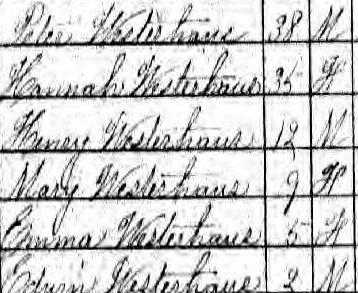 Peter Westerhaus 38 M
Hannah Westerhaus 35 F
Henry Westerhaus 12 M
Mary Westerhaus 9 F
Emma Westerhaus 5 F
Edwin Westerhaus 2 M